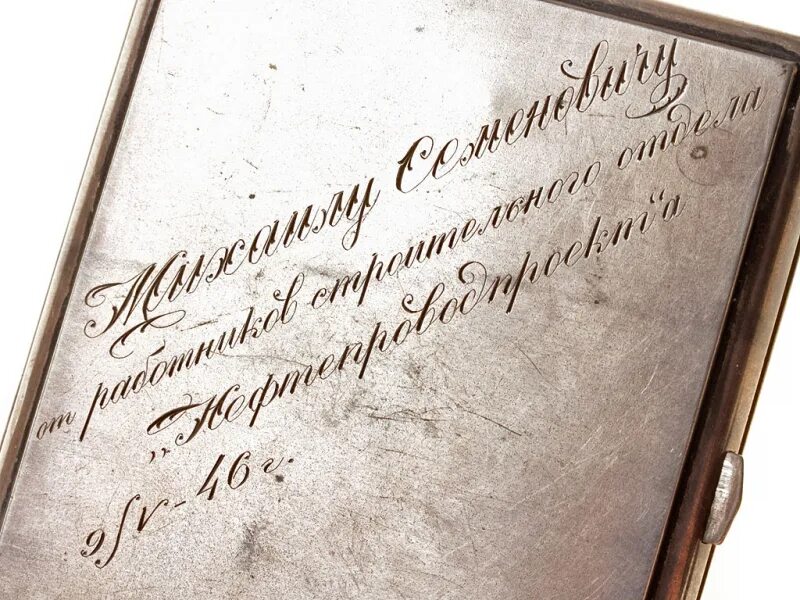 Михаилу Семеновичу
от работников строительного отдела
„Нефтепроводпроект"а
9/V-46 г.